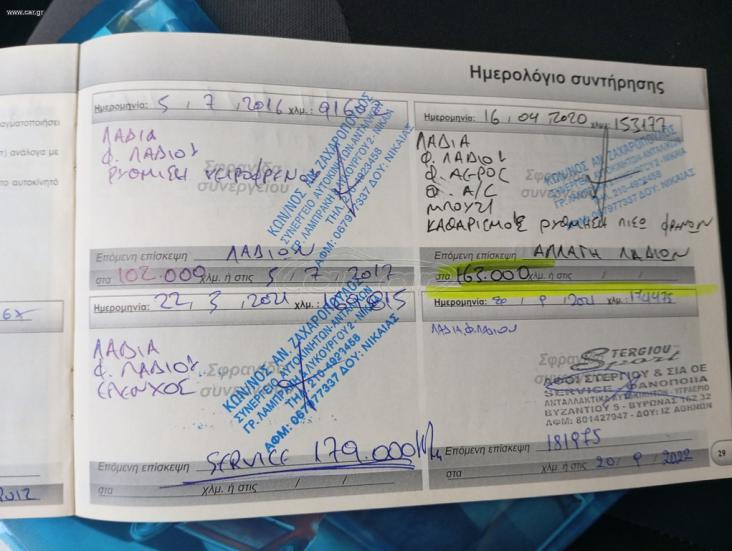 www.car.gr
Ημερολόγιο συντήρησης
Ημερομηνία: 5, 7, 2016 χλμ.:
ΛΑΔΙΑ
Φ. ΛΑΔΙΟΥ
ΡΥΘΜΙΣΗ ΧΕΙΡΟΦΡΕΝ
Σφραγίδα
συνεργείου
ΚΩΝ/ΝΟΣ ΑΝ. ΖΑΧΑΡΟΠΟΥΛΟΣ
ΣΥΝΕΡΓΕΙΟ ΑΥΤΟΚΙΝΗΤΩΝ-ΑΝΤΑΛ/ΚΩΝ
ΓΡ. ΛΑΜΠΡΑΚΗ & ΛΥΚΟΥΡΓΟΥ 2 - ΝΙΚΑΙΑ
ΤΗΛ. 210-4921458
ΑΦΜ: 067977337 ΔΟΥ: ΝΙΚΑΙΑΣ
Επόμενη επίσκεψη ΛΑΔΙΩΝ
στα 102.000 χλμ. ή στις 5 / 7 / 2017
Ημερομηνία: 16, 04 2020 χλμ. 153177
ΛΑΔΙΑ
Φ. ΛΑΔΙΟΥ
Φ. ΑΕΡΟΣ
Φ. A/C
ΜΠΟΥΖΙ
ΚΑΘΑΡΙΣΜΟΣ ΡΥΘΜΙΣΗ ΠΙΣΩ ΦΡΕΝΩΝ
ΚΩΝ/ΝΟΣ ΑΝ. ΖΑΧΑΡΟΠΟΥΛΟΣ
ΣΥΝΕΡΓΕΙΟ ΑΥΤΟΚΙΝΗΤΩΝ-ΑΝΤΑΛ/ΚΩΝ
ΓΡ. ΛΑΜΠΡΑΚΗ & ΛΥΚΟΥΡΓΟΥ 2 - ΝΙΚΑΙΑ
ΤΗΛ. 210-4921458
ΑΦΜ: 067977337 ΔΟΥ: ΝΙΚΑΙΑΣ
Επόμενη επίσκεψη ΑΛΛΑΓΗ ΛΑΔΙΩΝ
στα 163.000 χλμ. ή στις / /
Ημερομηνία: 22, 3, 2021 χλμ.:
ΛΑΔΙΑ
Φ. ΛΑΔΙΟΥ
ΕΛΕΓΧΟΣ
Σφραγίδα
συνεργείου
ΚΩΝ/ΝΟΣ ΑΝ. ΖΑΧΑΡΟΠΟΥΛΟΣ
ΣΥΝΕΡΓΕΙΟ ΑΥΤΟΚΙΝΗΤΩΝ-ΑΝΤΑΛ/ΚΩΝ
ΓΡ. ΛΑΜΠΡΑΚΗ & ΛΥΚΟΥΡΓΟΥ 2 - ΝΙΚΑΙΑ
ΤΗΛ. 210-4921458
ΑΦΜ: 067977337 ΔΟΥ: ΝΙΚΑΙΑΣ
Επόμενη επίσκεψη SERVICE 179.000 Km
στα χλμ. ή στις / /
Ημερομηνία: 20, 9, 2021 χλμ.: 174475
ΛΑΔΙΑ Φ. ΛΑΔΙΟΥ
STERGIOU
Sport
ΑΦΟΙ ΣΤΕΡΓΙΟΥ & ΣΙΑ ΟΕ
SERVICE - ΦΑΝΟΠΟΙΙΑ
ΑΝΤΑΛΛΑΚΤΙΚΑ ΑΥΤΟΚΙΝΗΤΩΝ - ΥΓΡΑΕΡΙΟ
ΒΥΖΑΝΤΙΟΥ 5 - ΒΥΡΩΝΑΣ 162 32
ΑΦΜ: 801427947 - ΔΟΥ: ΙΖ ΑΘΗΝΩΝ
Επόμενη επίσκεψη 181975
στα χλμ. ή στις 20 / 9 / 2022
29